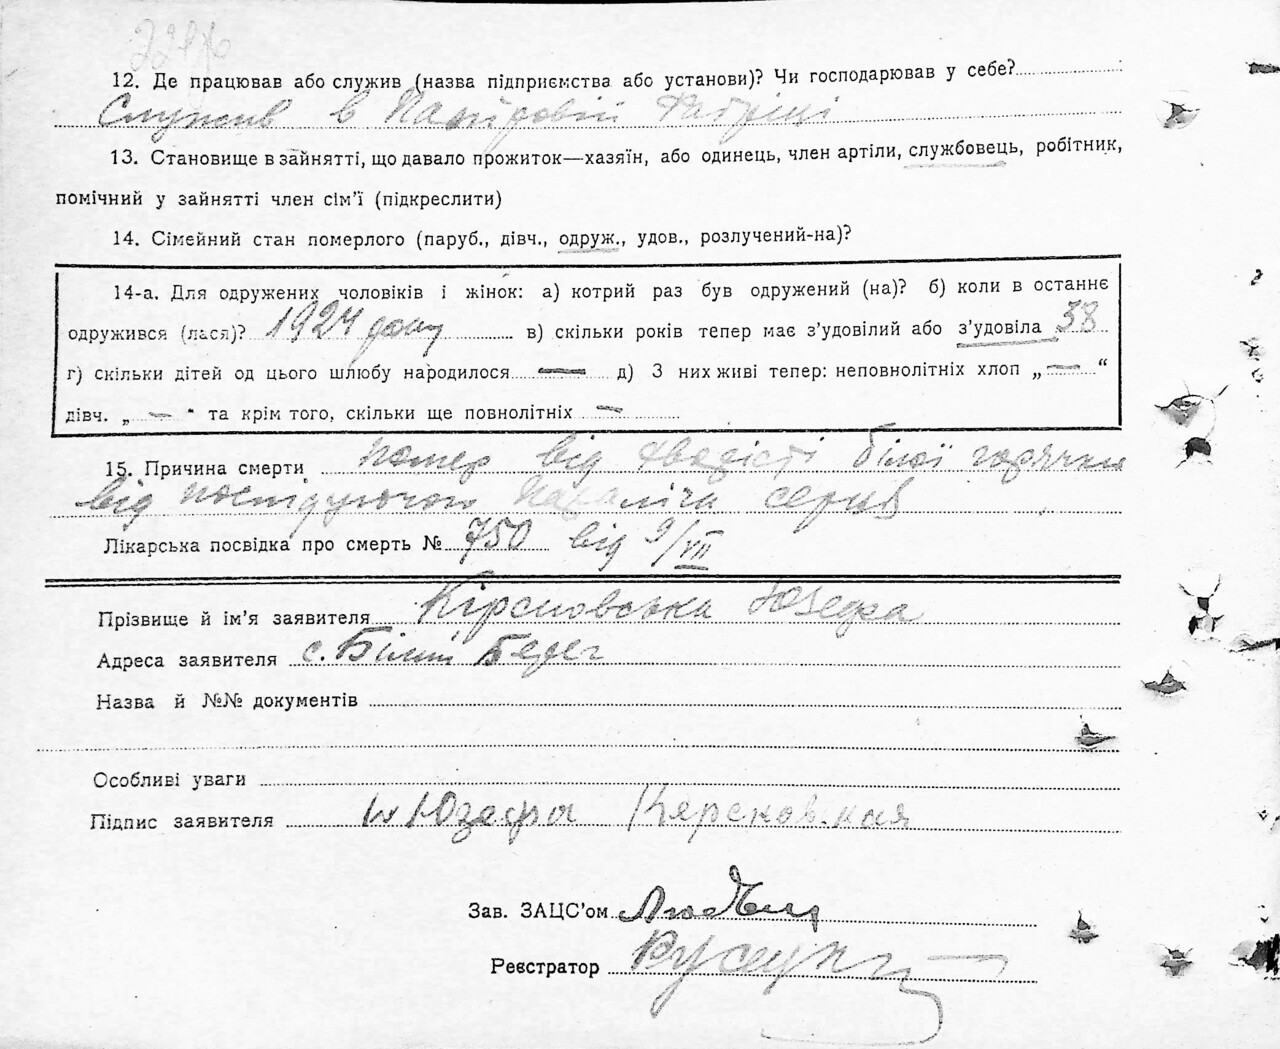 12. Де працював або служив (назва підприємства або установи)? Чи господарював у себе?
Служив в Папировій Фабриці
13. Становище в зайнятті, що давало прожиток—хазяїн, або одинець, член артіли, службовець, робітник,
помічний у зайнятті член сім’ї (підкреслити)
14. Сімейний стан померлого (паруб., дівч., одруж., удов., розлучений-на)?
14-а. Для одружених чоловіків і жінок: а) котрий раз був одружений (на)? б) коли в останнє
одружився (лася)? 1924 року в) скільки років тепер має з’удовілий або з’удовіла 38
г) скільки дітей од цього шлюбу народилося — д) З них живі тепер: неповнолітніх хлоп „—“
дівч. „—“ та крім того, скільки ще повнолітніх —
15. Причина смерти помер від білої горячки
від параліча серця
Лікарська посвідка про смерть № 750 від 9/VII
Прізвище й ім’я заявителя Юзефа
Адреса заявителя с. Білий Берег
Назва й №№ документів
Особливі уваги
Підпис заявителя Юзефа
Зав. ЗАЦС’ом
Реєстратор